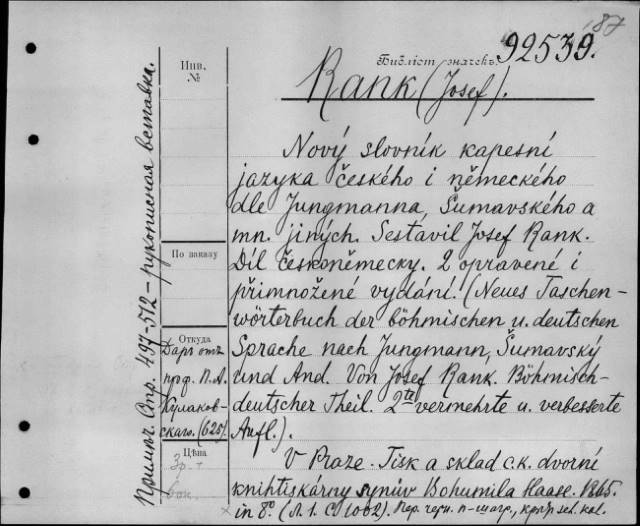 187
Библіот. значекъ 92539.
Rank (Josef).
Инв. №
Nový slovník kapesní
jazyka českého i německého
dle Jungmanna, Šumavského a
mn. jiných. Sestavil Josef Rank.
Díl českoněmecky. 2 opravené i
přimnožené vydání! (Neues Taschen-
wörterbuch der böhmischen u. deutschen
Sprache nach Jungmann, Šumavský
und And. Von Josef Rank. Böhmisch-
deutscher Theil. 2te vermehrte u. verbesserte
Aufl.).
V Praze. Tisk a sklad c.k. dvorní
knihtiskárny synův Bohumila Haase. 1865.
in 8º. (Л. 1. С. 1002). Пер. черн. п-шагр.,
По заказу
Откуда
Даръ отъ
проф. П. А.
Кулаков-
скаго. (625)
Цѣна
3р. +
Примѣч. Стр. 497-512 – рукописная вставка.